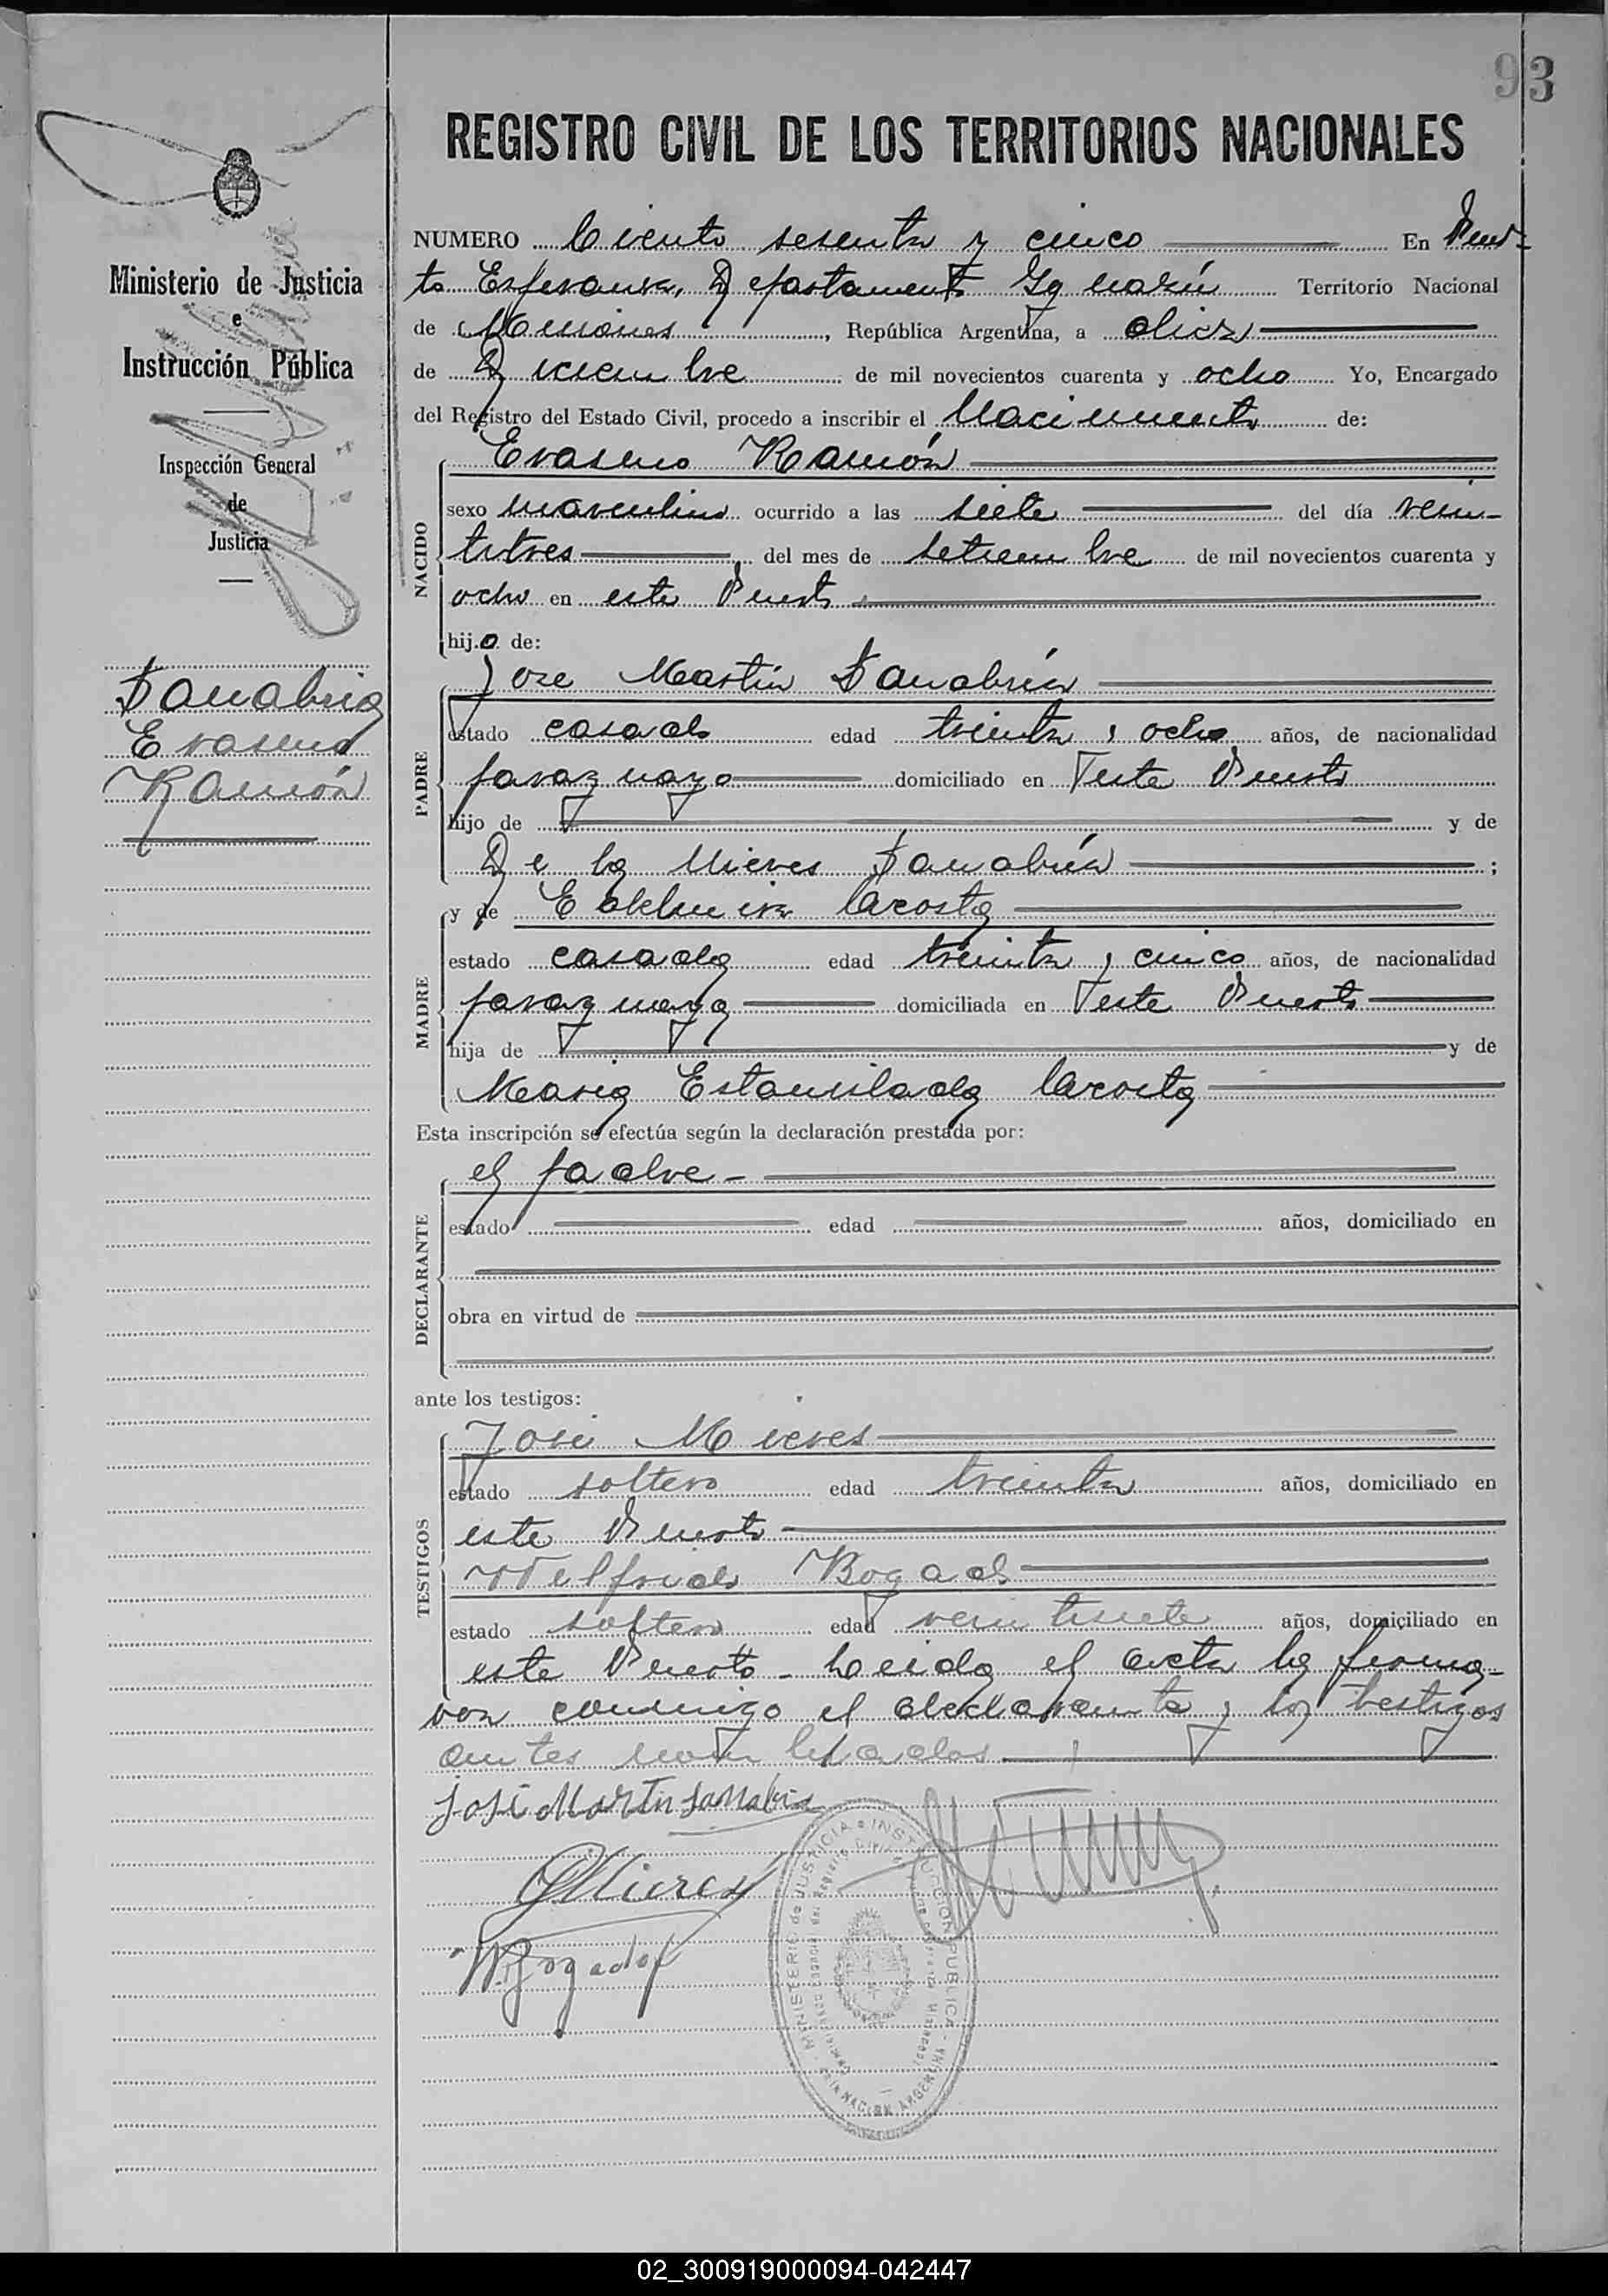 93
REGISTRO CIVIL DE LOS TERRITORIOS NACIONALES
Ministerio de Justicia
e
Instrucción Pública
Inspección General
de
Justicia
Sanabria
Erasmo
Ramón
NUMERO Ciento sesenta y cinco En Puer-
to Esperanza, Departamento Iguazú Territorio Nacional
de Misiones, República Argentina, a diez
de Diciembre de mil novecientos cuarenta y ocho Yo, Encargado
del Registro del Estado Civil, procedo a inscribir el Nacimiento de:
NACIDO
Erasmo Ramón
sexo masculino ocurrido a las siete del día vein-
titres del mes de setiembre de mil novecientos cuarenta y
ocho en este Puerto
hijo de:
PADRE
José Martín Sanabria
estado casado edad treinta y ocho años, de nacionalidad
paraguayo domiciliado en este Puerto
hijo de y de
De la Nieves Sanabria ;
MADRE
y de Acosta
estado casada edad treinta y cinco años, de nacionalidad
paraguaya domiciliada en este Puerto
hija de y de
Maria Estanislada Acosta
Esta inscripción se efectúa según la declaración prestada por:
DECLARANTE
el padre -
estado edad años, domiciliado en
obra en virtud de
ante los testigos:
TESTIGOS
José Mieres
estado soltero edad treinta años, domiciliado en
este Puerto
Welfrido Bogado
estado soltero edad veintisiete años, domiciliado en
este Puerto - Leida el acta la firma-
ron conmigo el declarante y los testigos
antes nombrados
José Martín Sanabria
Mieres
W Bogado
MINISTERIO de JUSTICIA e INSTRUCCION PUBLICA
NACION ARGENTINA
02_300919000094-042447